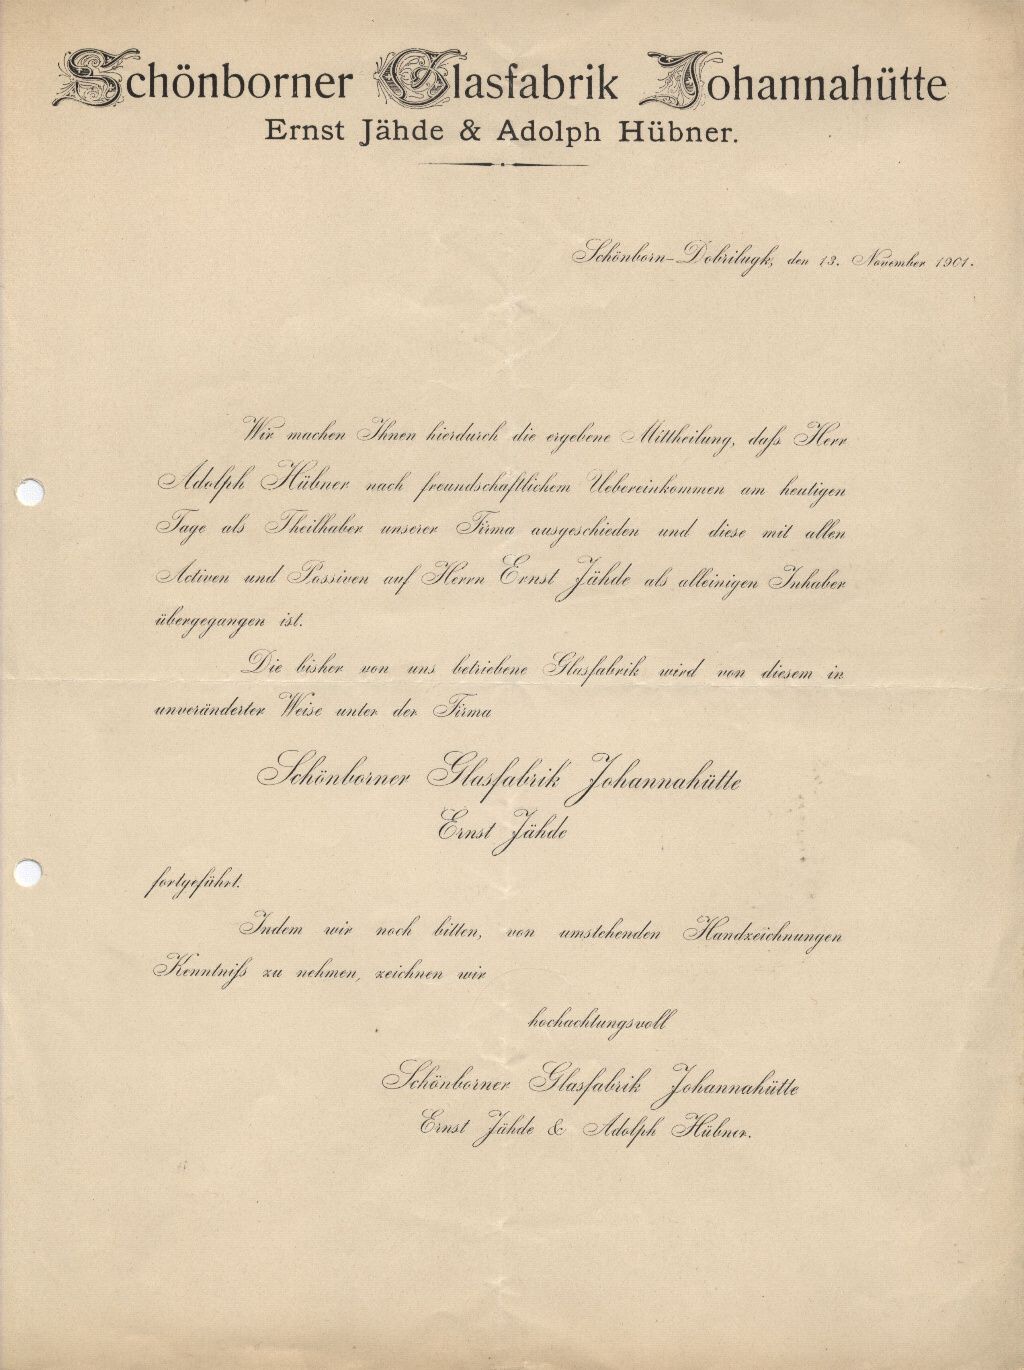 Schönborner Glasfabrik Johannahütte
Ernst Jähde & Adolph Hübner.
Schönborn-Dobrilugk, den 13. November 1901.
Wir machen Ihnen hierdurch die ergebene Mittheilung, dass Herr
Adolph Hübner nach freundschaftlichem Uebereinkommen am heutigen
Tage als Theilhaber unserer Firma ausgeschieden und diese mit allen
Activen und Passiven auf Herrn Ernst Jähde als alleinigen Inhaber
übergegangen ist.
Die bisher von uns betriebene Glasfabrik wird von diesem in
unveränderter Weise unter der Firma
Schönborner Glasfabrik Johannahütte
Ernst Jähde
fortgeführt.
Indem wir noch bitten, von umstehenden Handzeichnungen
Kenntniss zu nehmen, zeichnen wir
hochachtungsvoll
Schönborner Glasfabrik Johannahütte
Ernst Jähde & Adolph Hübner.